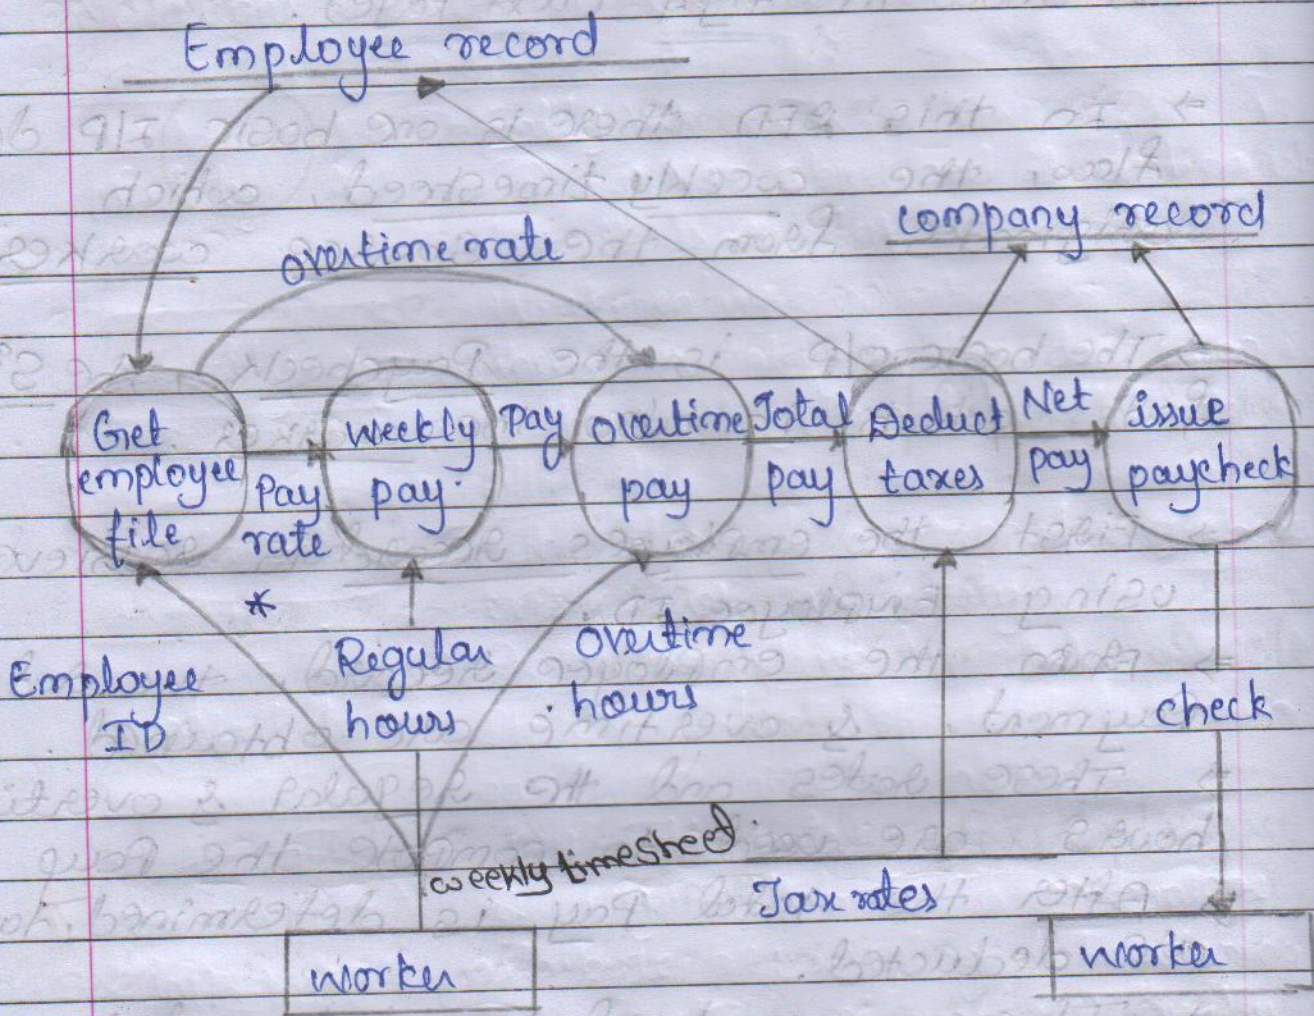 Employee record
company record
overtime rate
Get
employee
file
Pay
rate
*
weekly
pay
Pay
overtime
pay
Total
pay
Deduct
taxes
Net
pay
issue
paycheck
Employee
ID
Regular
hours
overtime
hours
check
weekly timesheet
Tax rates
worker
worker